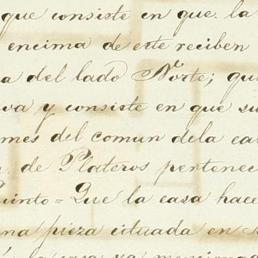 que consiste en que la
encima de este reciben
a del lado Norte; qu
va y consiste en que su
mes del comun dela ca
de Plateros pertenec
uinto = Que la casa hace
na pieza cituada en